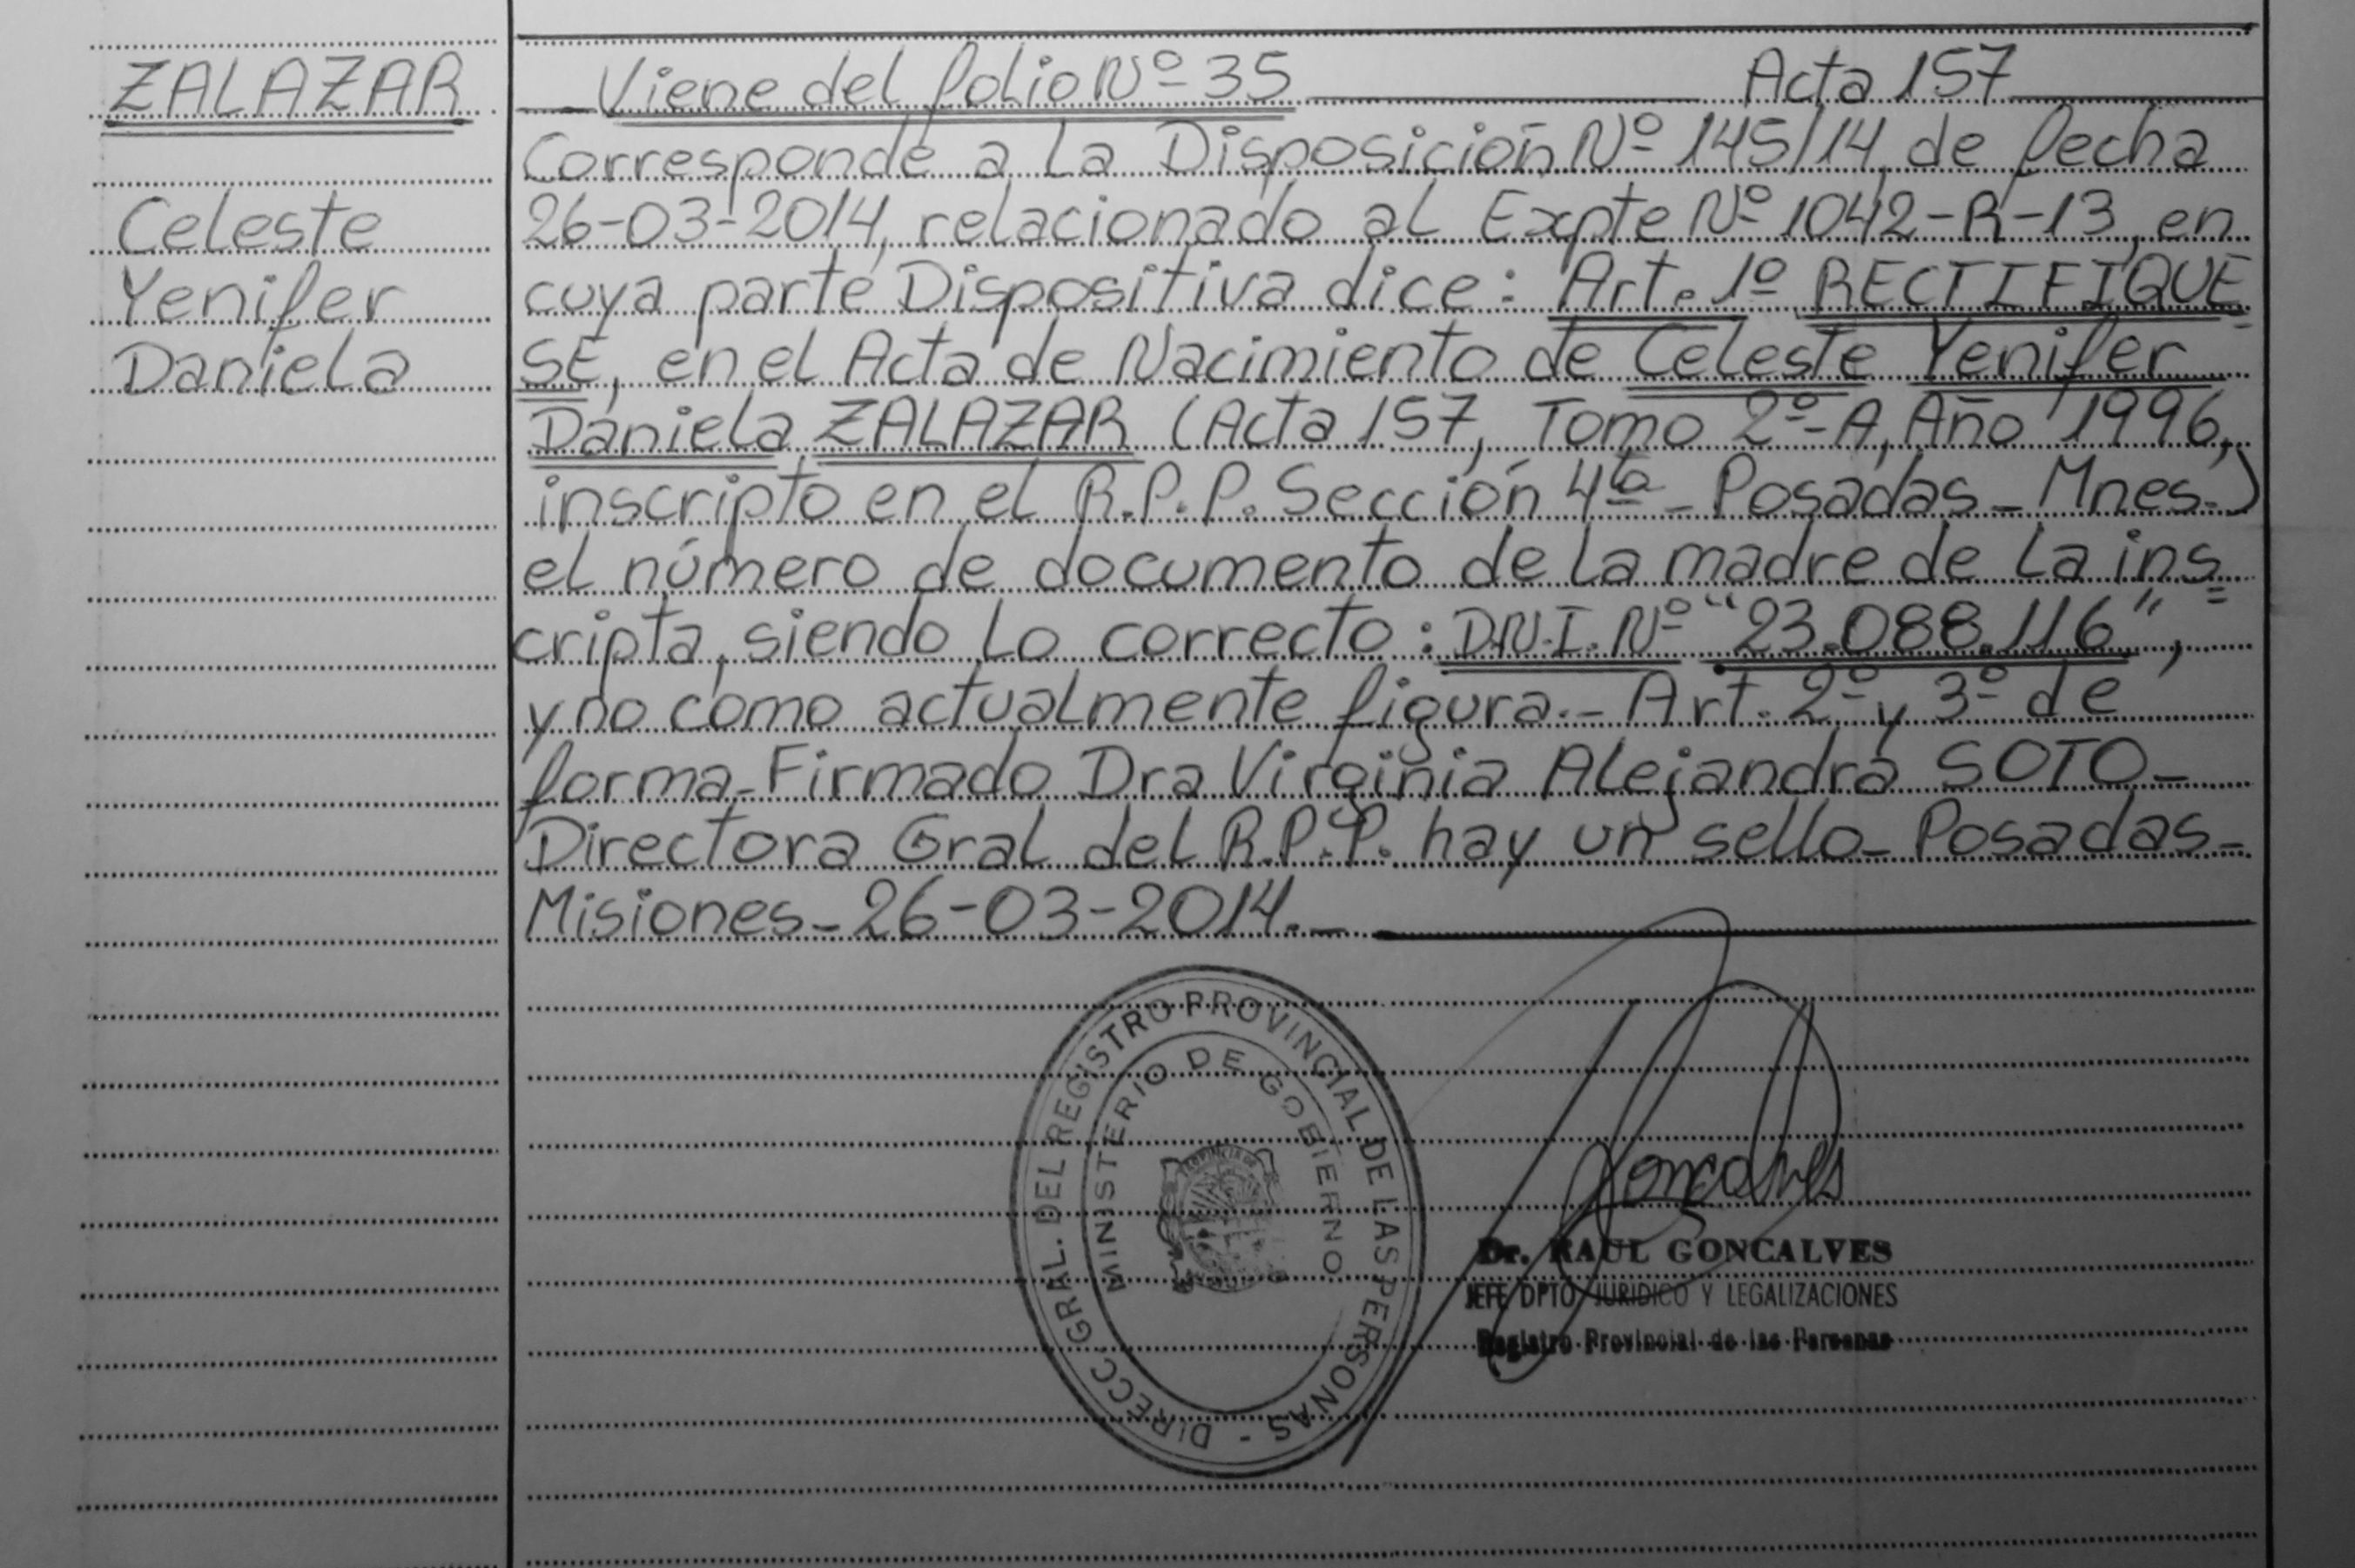 ZALAZAR
Celeste
Yenifer
Daniela
Viene del folio Nº 35 Acta 157
Corresponde a la Disposición Nº 145/14, de fecha
26-03-2014, relacionado al Expte Nº 1042-R-13, en
cuya parte Dispositiva dice: Art. 1º RECTIFIQUE
SE, en el Acta de Nacimiento de Celeste Yenifer
Daniela ZALAZAR (Acta 157, Tomo 2º-A, Año 1996,
inscripto en el R.P.P. Sección 4ta - Posadas - Mnes.)
el número de documento de la madre de la ins=
cripta, siendo lo correcto: D.N.I. Nº "23.088.116",
y no como actualmente figura.- Art. 2º y 3º de
forma-Firmado Dra Virginia Alejandra SOTO-
Directora Gral del R.P.P. hay un sello- Posadas-
Misiones-26-03-2014.-
DIRECC. GRAL. DEL REGISTRO PROVINCIAL DE LAS PERSONAS -
MINISTERIO DE GOBIERNO
PROVINCIA DE
Goncalves
Dr. RAUL GONCALVES
JEFE DPTO. JURIDICO Y LEGALIZACIONES
Registro Provincial de las Personas